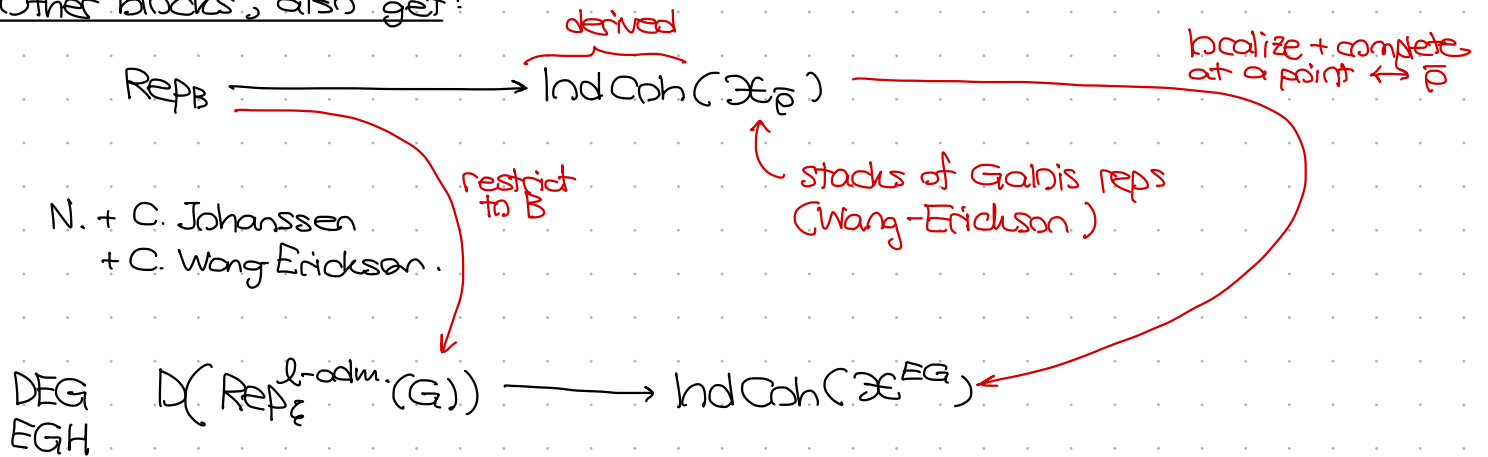 Other blocks, also get:
derived
localize + complete
at a point ↔ ρ̄
Rep_B ⟶ IndCoh(𝔛_ρ̄)
restrict
to B
stacks of Galois reps
(Wang-Erickson)
N. + C. Johanssen
+ C. Wang Erickson.
DEG D(Rep_ξ^{l-adm.}(G)) ⟶ IndCoh(𝔛^{EG})
EGH